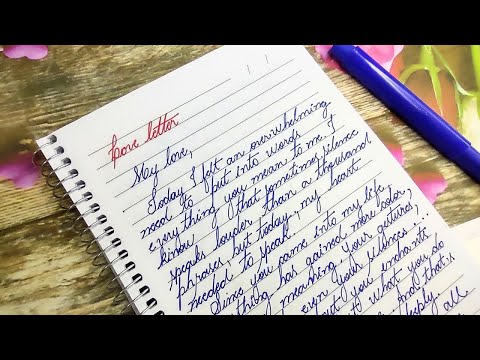 Love letter
My love,
Today I felt an overwhelming
need to put into words
everything you mean to me. I
know that sometimes silence
speaks louder than a thousand
phrases but today, my heart
needed to speak.
Since you came into my life,
thing has gained more color,
meaning. Your gestures,
even your silences...
out you enchants
what you do
and that's
deeply
all